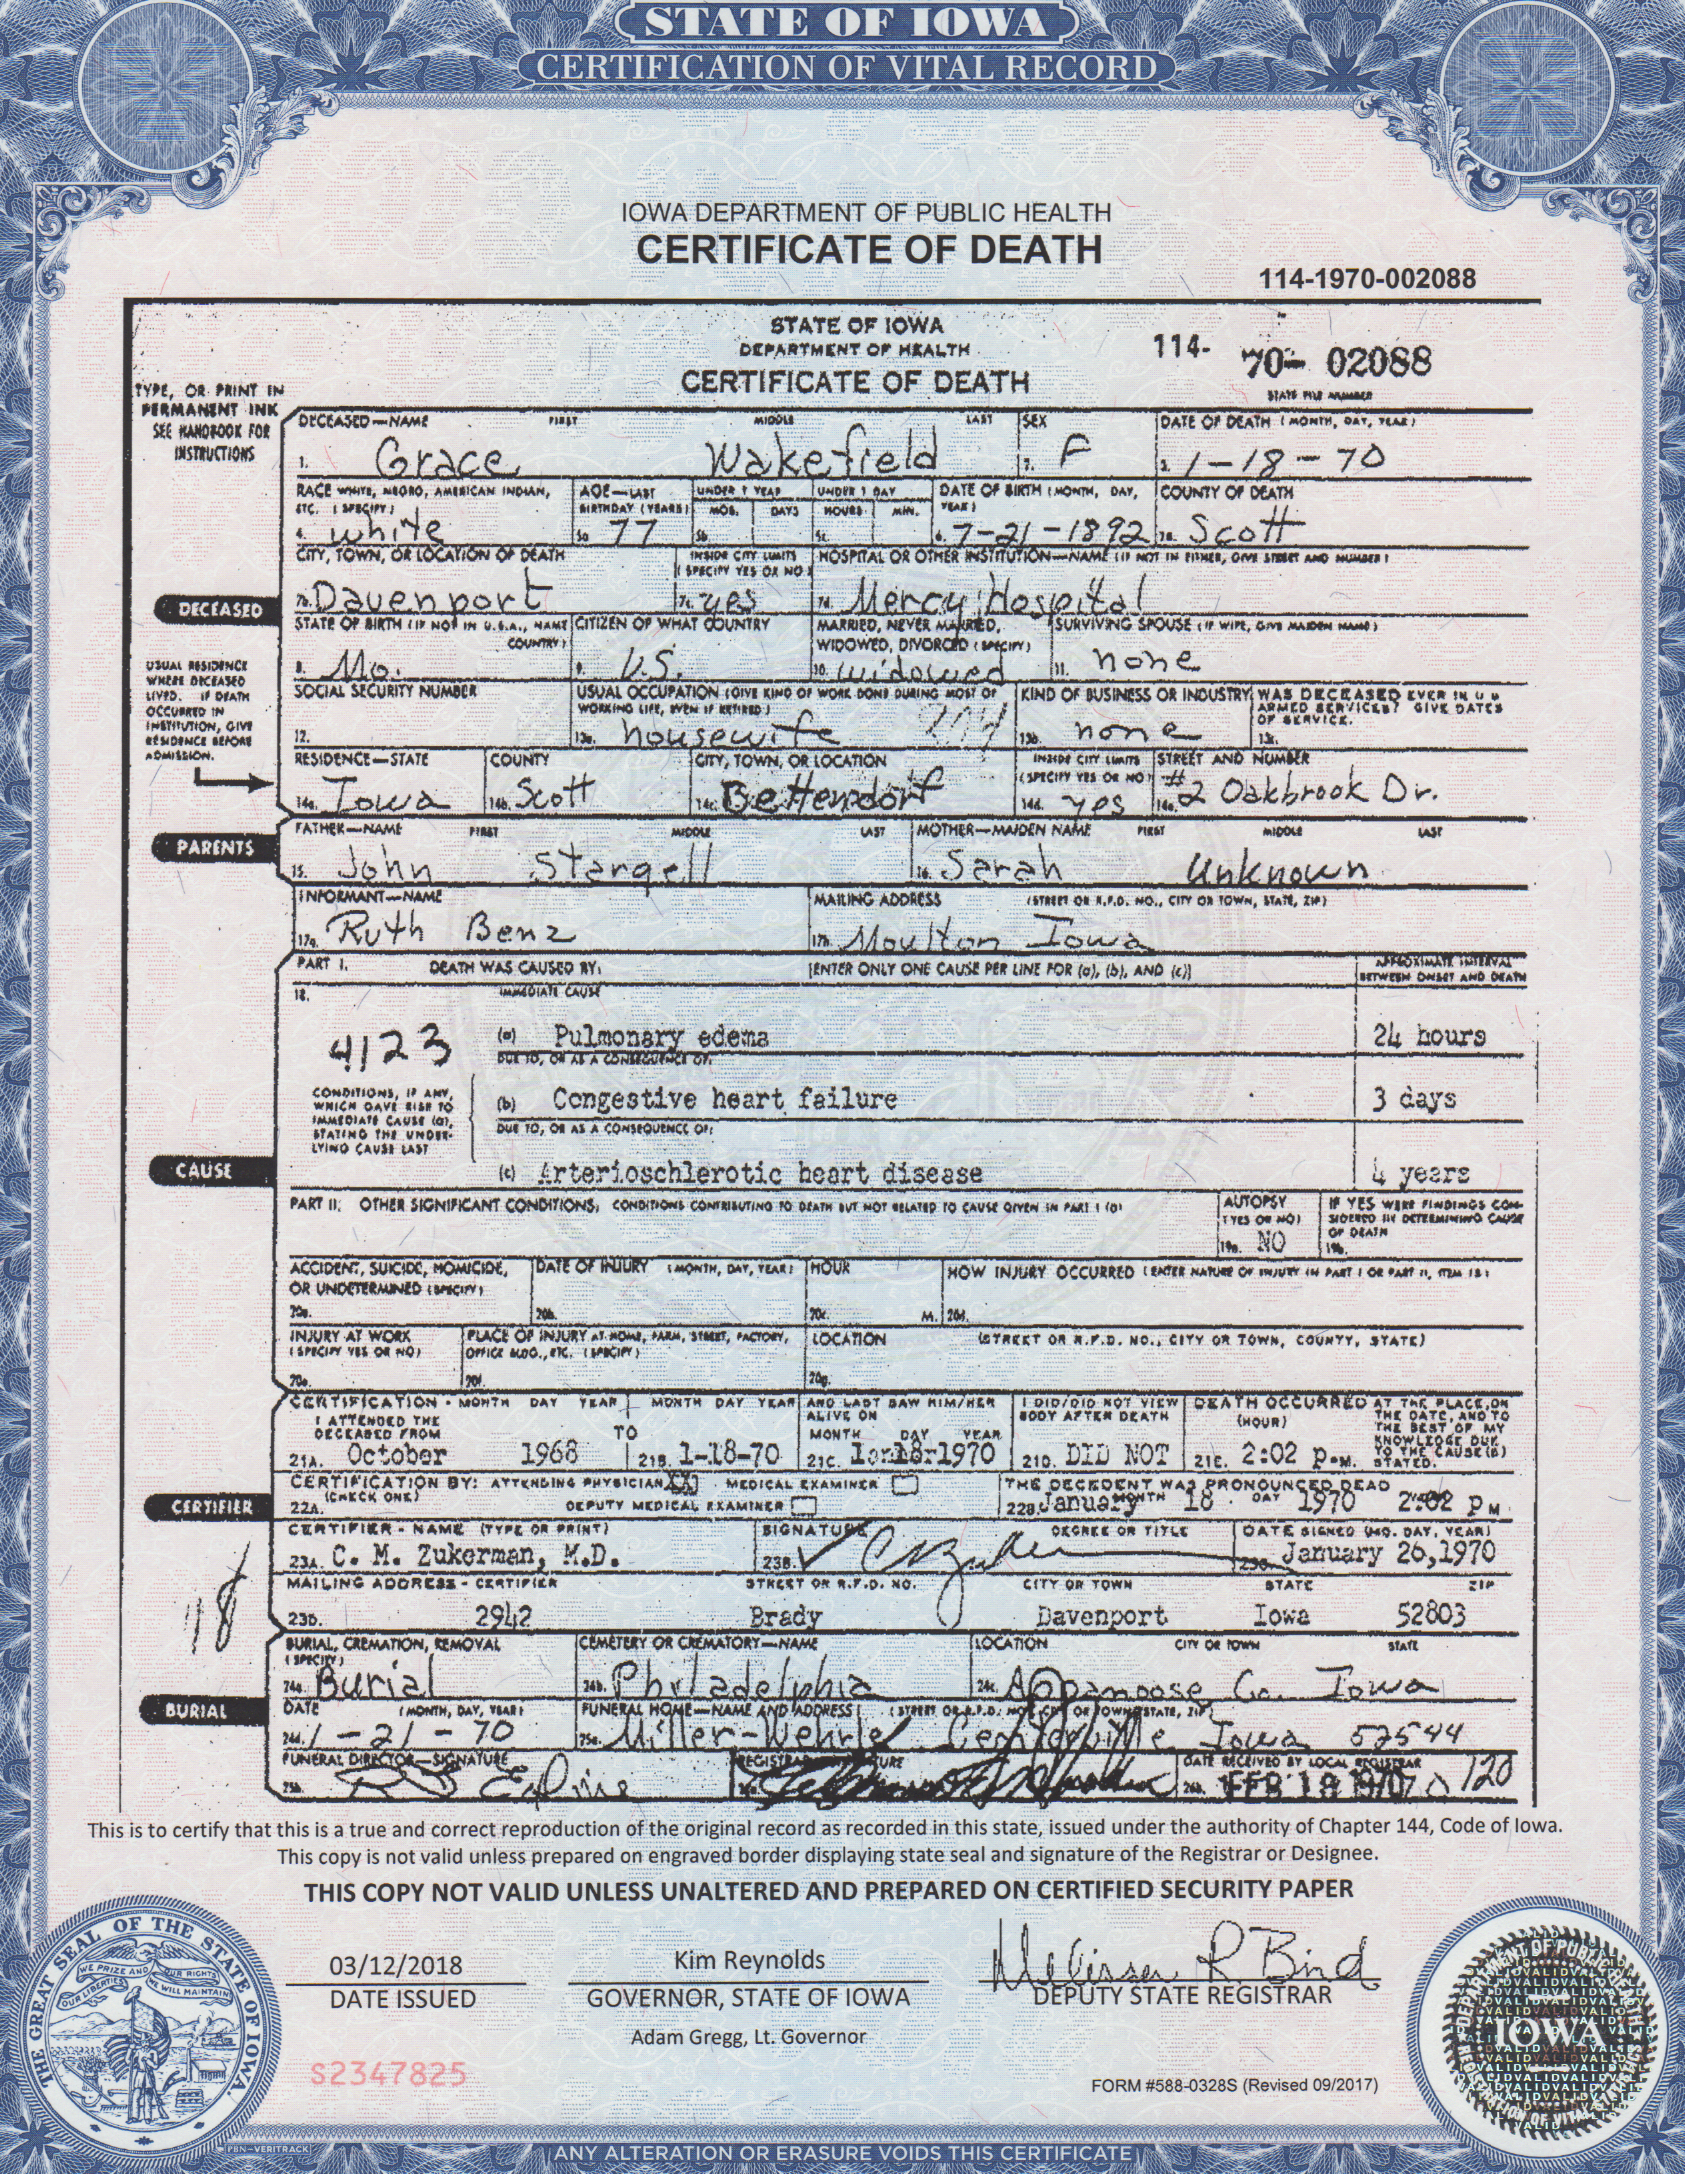 STATE OF IOWA
CERTIFICATION OF VITAL RECORD
IOWA DEPARTMENT OF PUBLIC HEALTH
CERTIFICATE OF DEATH
114-1970-002088
STATE OF IOWA
DEPARTMENT OF HEALTH
CERTIFICATE OF DEATH
114- 70- 02088
STATE FILE NUMBER
TYPE, OR PRINT IN
PERMANENT INK
SEE HANDBOOK FOR
INSTRUCTIONS
DECEASED—NAME FIRST MIDDLE LAST SEX DATE OF DEATH (MONTH, DAY, YEAR)
1. Grace Wakefield 2. F 3. 1-18-70
RACE WHITE, NEGRO, AMERICAN INDIAN, ETC. (SPECIFY) AGE—LAST BIRTHDAY (YEARS) UNDER 1 YEAR MOS. DAYS UNDER 1 DAY HOURS MIN. DATE OF BIRTH (MONTH, DAY, YEAR) COUNTY OF DEATH
4. white 5a. 77 5b. 5c. 6. 7-21-1892 7a. Scott
CITY, TOWN, OR LOCATION OF DEATH INSIDE CITY LIMITS (SPECIFY YES OR NO) HOSPITAL OR OTHER INSTITUTION—NAME (IF NOT IN EITHER, GIVE STREET AND NUMBER)
7b. Davenport 7c. yes 7d. Mercy Hospital
DECEASED
STATE OF BIRTH (IF NOT IN U.S.A., NAME COUNTRY) CITIZEN OF WHAT COUNTRY MARRIED, NEVER MARRIED, WIDOWED, DIVORCED (SPECIFY) SURVIVING SPOUSE (IF WIFE, GIVE MAIDEN NAME)
8. Mo. 9. U.S. 10. widowed 11. none
USUAL RESIDENCE
WHERE DECEASED
LIVED. IF DEATH
OCCURRED IN
INSTITUTION, GIVE
RESIDENCE BEFORE
ADMISSION.
SOCIAL SECURITY NUMBER USUAL OCCUPATION (GIVE KIND OF WORK DONE DURING MOST OF WORKING LIFE, EVEN IF RETIRED) KIND OF BUSINESS OR INDUSTRY WAS DECEASED EVER IN U S ARMED SERVICES? GIVE DATES OF SERVICE.
12. 13a. housewife 13b. none 13c.
RESIDENCE—STATE COUNTY CITY, TOWN, OR LOCATION INSIDE CITY LIMITS (SPECIFY YES OR NO) STREET AND NUMBER
14a. Iowa 14b. Scott 14c. Bettendorf 14d. yes 14e. #2 Oakbrook Dr.
PARENTS
FATHER—NAME FIRST MIDDLE LAST MOTHER—MAIDEN NAME FIRST MIDDLE LAST
15. John Stargell 16. Sarah Unknown
INFORMANT—NAME MAILING ADDRESS (STREET OR R.F.D. NO., CITY OR TOWN, STATE, ZIP)
17a. Ruth Benz 17b. Moulton Iowa
PART I. DEATH WAS CAUSED BY: [ENTER ONLY ONE CAUSE PER LINE FOR (a), (b), AND (c)] APPROXIMATE INTERVAL BETWEEN ONSET AND DEATH
18. IMMEDIATE CAUSE
4123 (a) Pulmonary edema 24 hours
DUE TO, OR AS A CONSEQUENCE OF:
CONDITIONS, IF ANY,
WHICH GAVE RISE TO
IMMEDIATE CAUSE (a),
STATING THE UNDER-
LYING CAUSE LAST
(b) Congestive heart failure 3 days
DUE TO, OR AS A CONSEQUENCE OF:
CAUSE
(c) Arterioschlerotic heart disease 4 years
PART II. OTHER SIGNIFICANT CONDITIONS; CONDITIONS CONTRIBUTING TO DEATH BUT NOT RELATED TO CAUSE GIVEN IN PART I (a) AUTOPSY (YES OR NO) IF YES WERE FINDINGS CONSIDERED IN DETERMINING CAUSE OF DEATH
19a. NO 19b.
ACCIDENT, SUICIDE, HOMICIDE, OR UNDETERMINED (SPECIFY) DATE OF INJURY (MONTH, DAY, YEAR) HOUR HOW INJURY OCCURRED (ENTER NATURE OF INJURY IN PART I OR PART II, ITEM 18)
20a. 20b. 20c. M. 20d.
INJURY AT WORK (SPECIFY YES OR NO) PLACE OF INJURY AT HOME, FARM, STREET, FACTORY, OFFICE BLDG., ETC. (SPECIFY) LOCATION (STREET OR R.F.D. NO., CITY OR TOWN, COUNTY, STATE)
20e. 20f. 20g.
CERTIFICATION - MONTH DAY YEAR MONTH DAY YEAR AND LAST SAW HIM/HER ALIVE ON MONTH DAY YEAR I DID/DID NOT VIEW BODY AFTER DEATH DEATH OCCURRED (HOUR) AT THE PLACE, ON THE DATE, AND TO THE BEST OF MY KNOWLEDGE DUE TO THE CAUSE(S) STATED.
I ATTENDED THE DECEASED FROM TO
21A. October 1968 21B. 1-18-70 21C. Jan 18 1970 21D. DID NOT 21E. 2:02 P.M.
CERTIFICATION BY: ATTENDING PHYSICIAN XX MEDICAL EXAMINER THE DECEDENT WAS PRONOUNCED DEAD
(CHECK ONE) DEPUTY MEDICAL EXAMINER MONTH DAY
22A. 22B. January 18 1970 2:02 P M
CERTIFIER
CERTIFIER - NAME (TYPE OR PRINT) SIGNATURE DEGREE OR TITLE DATE SIGNED (MO. DAY, YEAR)
23A. C. M. Zukerman, M.D. 23B. CMZukerman 23C. January 26, 1970
MAILING ADDRESS - CERTIFIER STREET OR R.F.D. NO. CITY OR TOWN STATE ZIP
23D. 2942 Brady Davenport Iowa 52803
18
BURIAL, CREMATION, REMOVAL (SPECIFY) CEMETERY OR CREMATORY—NAME LOCATION CITY OR TOWN STATE
24a. Burial 24b. Philadelphia 24c. Appanoose Co. Iowa
BURIAL
DATE (MONTH, DAY, YEAR) FUNERAL HOME—NAME AND ADDRESS (STREET OR R.F.D. NO., CITY OR TOWN, STATE, ZIP)
24d. 1-21-70 25a. Miller-Wehrle Centerville Iowa 52544
FUNERAL DIRECTOR—SIGNATURE REGISTRAR SIGNATURE DATE RECEIVED BY LOCAL REGISTRAR
25b. 26b. FEB 1970 120
This is to certify that this is a true and correct reproduction of the original record as recorded in this state, issued under the authority of Chapter 144, Code of Iowa.
This copy is not valid unless prepared on engraved border displaying state seal and signature of the Registrar or Designee.
THIS COPY NOT VALID UNLESS UNALTERED AND PREPARED ON CERTIFIED SECURITY PAPER
03/12/2018 Kim Reynolds Melissa R Bird
DATE ISSUED GOVERNOR, STATE OF IOWA DEPUTY STATE REGISTRAR
Adam Gregg, Lt. Governor
S2347825
FORM #588-0328S (Revised 09/2017)
THE GREAT SEAL OF THE STATE OF IOWA
WE PRIZE AND OUR RIGHTS
OUR LIBERTIES WE WILL MAINTAIN
IOWA
VALID
PBN-VERITRACK
ANY ALTERATION OR ERASURE VOIDS THIS CERTIFICATE